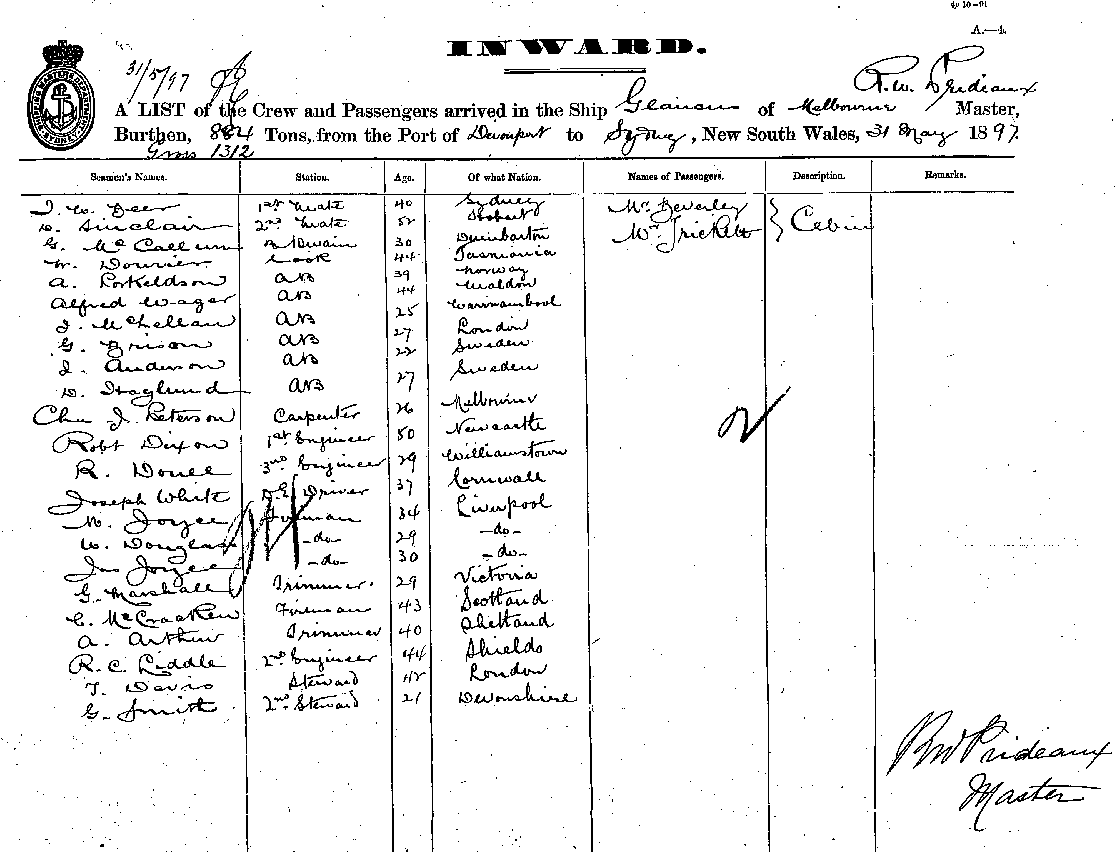 A.—4.
INWARD.
31/5/97
R.W. Prideaux
A LIST of the Crew and Passengers arrived in the Ship of Melbourne Master,
Burthen, 884 Tons, from the Port of Devonport to Sydney, New South Wales, 31 May 1897
Gross 1312
Seamen's Names. Station. Age. Of what Nation. Names of Passengers. Description. Remarks.
J. W. Deer 1st Mate 40 Sydney Mr. Beverley Cabin
D. Sinclair 2nd Mate 52 Hobart Mr Trickett
G. McCallum 30 Dumbarton
W. Cook 44 Tasmania
A. Torkeldson AB 39 Norway
Alfred Wager AB 44 Maldon
J. McLellan AB 25 Warrnambool
G. AB 27 London
J. Anderson AB 22 Sweden
D. Haglund AB 27 Sweden
Chas J. Peterson Carpenter 26 Melbourne
Robt Dixon 1st Engineer 50 Newcastle
R. 3rd Engineer 29 Williamstown
Joseph White Driver 37 Cornwall
M. Joyce Fireman 34 Liverpool
W. Douglass -do- 29 -do-
Jas Joyce -do- 30 -do-
G. Marshall Trimmer 29 Victoria
C. McCracken Fireman 43 Scotland
A. Arthur Trimmer 40 Shetland
R. C. Liddle 2nd Engineer 44 Shields
T. Davis Steward 42 London
G. Smith 2nd Steward 21 Devonshire
RW Prideaux
Master